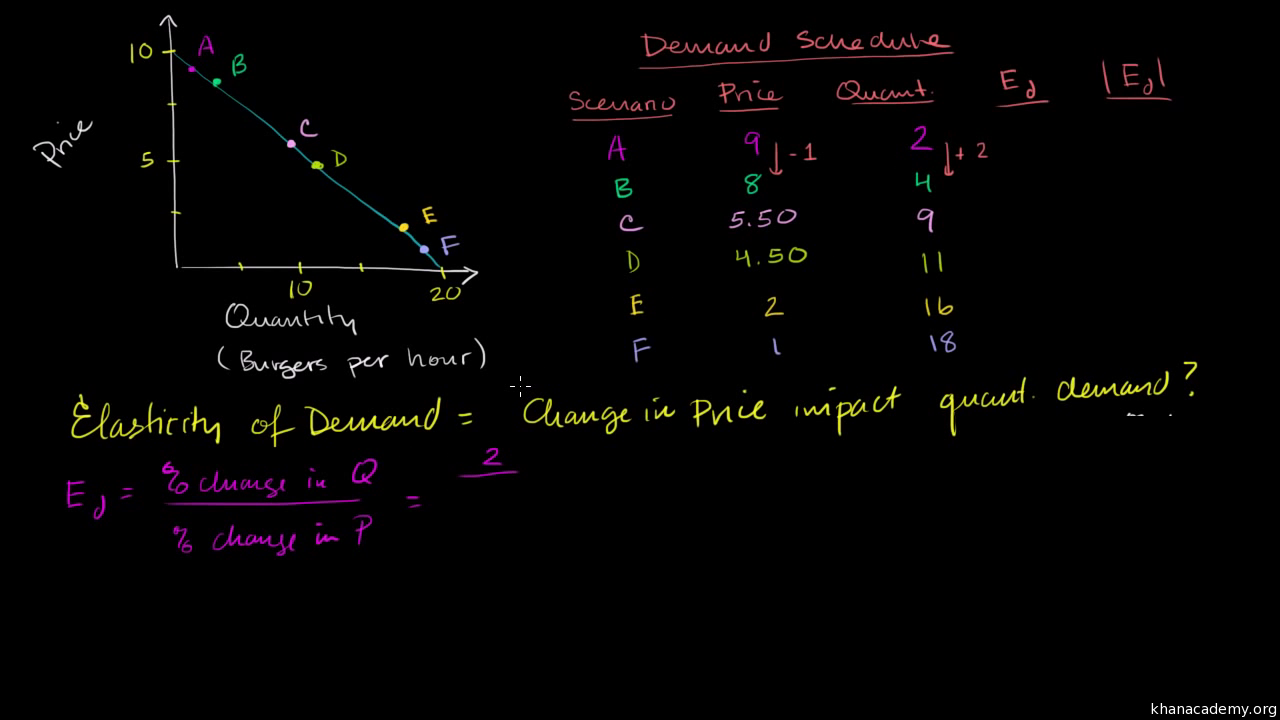 10
A
B
C
5
D
E
F
Price
10
20
Quantity
(Burgers per hour)
Demand Schedule
Scenario Price Quant. Ed |Ed|
A 9 2
↓ - 1 ↓ + 2
B 8 4
C 5.50 9
D 4.50 11
E 2 16
F 1 18
Elasticity of Demand = Change in Price impact quant. demand?
Ed = % change in Q / % change in P = 2
khanacademy.org